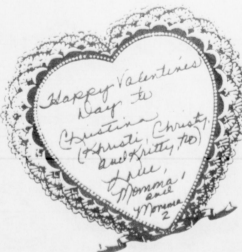 Happy Valentines
Day to
Christina,
(Khristi, Christy,
and Kritty, to)
Love,
Momma,
and
Momma
2